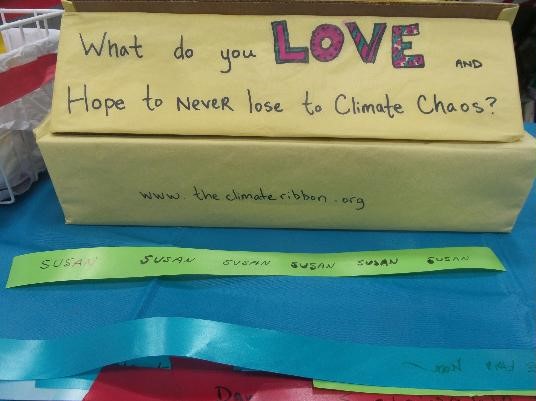 What do you LOVE AND
Hope to Never lose to Climate Chaos?
www.theclimateribbon.org
SUSAN SUSAN SUSAN SUSAN SUSAN SUSAN